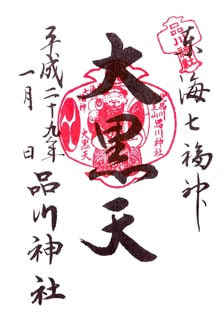 東海七福神
大黒天
平成二十九年
一月 日
品川神社
品川
大黒天
品川神社